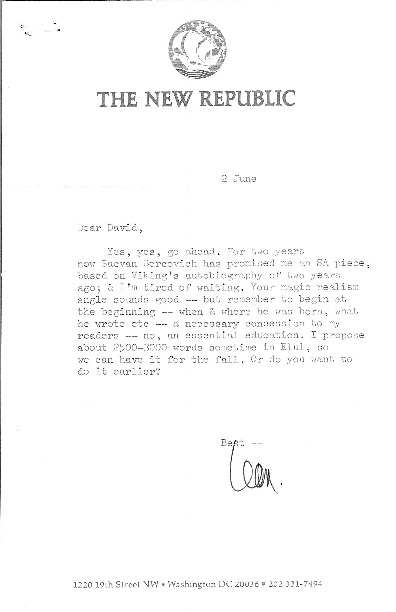 THE NEW REPUBLIC
2 June
Dear David,
Yes, yes, go ahead. For two years
now Sacvan Bercovich has promised me an SA piece,
based on Viking's autobiography of two years
ago; & I'm tired of waiting. Your magic realism
angle sounds good -- but remember to begin at
the beginning -- when & where he was born, what
he wrote etc -- a necessary concession to my
readers -- no, an essential education. I propose
about 2500-3000 words sometime in Elul, so
we can have it for the fall. Or do you want to
do it earlier?
Best --
Leon.
1220 19th Street NW • Washington DC 20036 • 202 331-7494